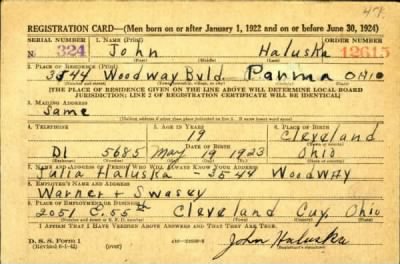 478
REGISTRATION CARD—(Men born on or after January 1, 1922 and on or before June 30, 1924)
SERIAL NUMBER 1. NAME (Print) ORDER NUMBER
N 324 John Haluska 12615
(First) (Middle) (Last)
2. PLACE OF RESIDENCE (Print)
3544 Woodway Bvld. Parma OHIO
[THE PLACE OF RESIDENCE GIVEN ON THE LINE ABOVE WILL DETERMINE LOCAL BOARD
JURISDICTION; LINE 2 OF REGISTRATION CERTIFICATE WILL BE IDENTICAL]
3. MAILING ADDRESS
Same
[Mailing address if other than place indicated on line 2. If same insert word same]
4. TELEPHONE 5. AGE IN YEARS 6. PLACE OF BIRTH
19 Cleveland
DATE OF BIRTH
DI 5685 May 19 1923 Ohio
(Exchange) (Number) (Mo.) (Day) (Yr.) (State or country)
7. NAME AND ADDRESS OF PERSON WHO WILL ALWAYS KNOW YOUR ADDRESS
Julia Haluska - 3544 Woodway
8. EMPLOYER'S NAME AND ADDRESS
Warner + Swasey
9. PLACE OF EMPLOYMENT OR BUSINESS
2051 E. 55th Cleveland Cuy. Ohio
(Number and street or R. F. D. number) (Town) (County) (State)
I AFFIRM THAT I HAVE VERIFIED ABOVE ANSWERS AND THAT THEY ARE TRUE.
D. S. S. Form 1
(Revised 6-1-42) (over)
John Haluska
(Registrant's signature)